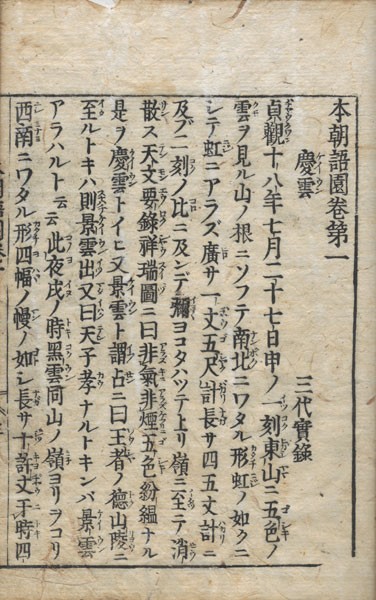 本朝語園卷第一
慶雲 三代實錄
貞觀十八年七月二十七日申ノ一刻東山ニ五色ノ
雲ヲ見ル山ノ根ニソフテ南北ニワタル形虹ノ如クニ
シテ虹ニアラズ廣サ一丈五尺計長サ四五丈計ニ
及ブ二刻ノ比ニ及ンデ彌ヨコタハツテ上リ嶺ニ至テ消
散ス天文要錄祥瑞圖ニ曰非氣非煙五色紛緼ナル
是ヲ慶雲トイヒ又景雲ト謂占ニ曰王者ノ德山陵ニ
至ルトキハ則景雲出又曰天子孝ナルトキンバ景雲
アラハルト云云此夜戌ノ時黑雲同山ノ嶺ヨリヲコリ
西南ニワタル形四幅ノ幔ノ如シ長サ十許丈于時四